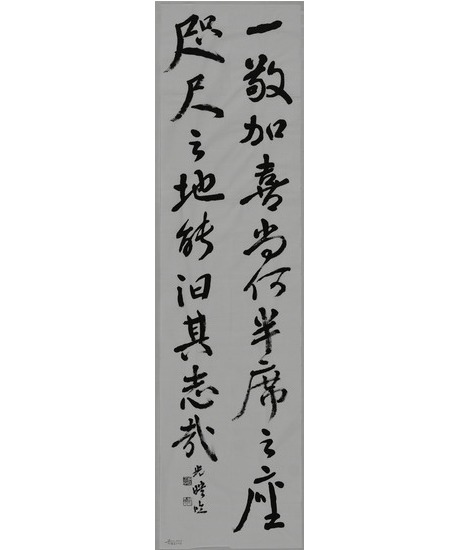 一敬加喜尚何半席之座
咫尺之地能汩其志哉
光